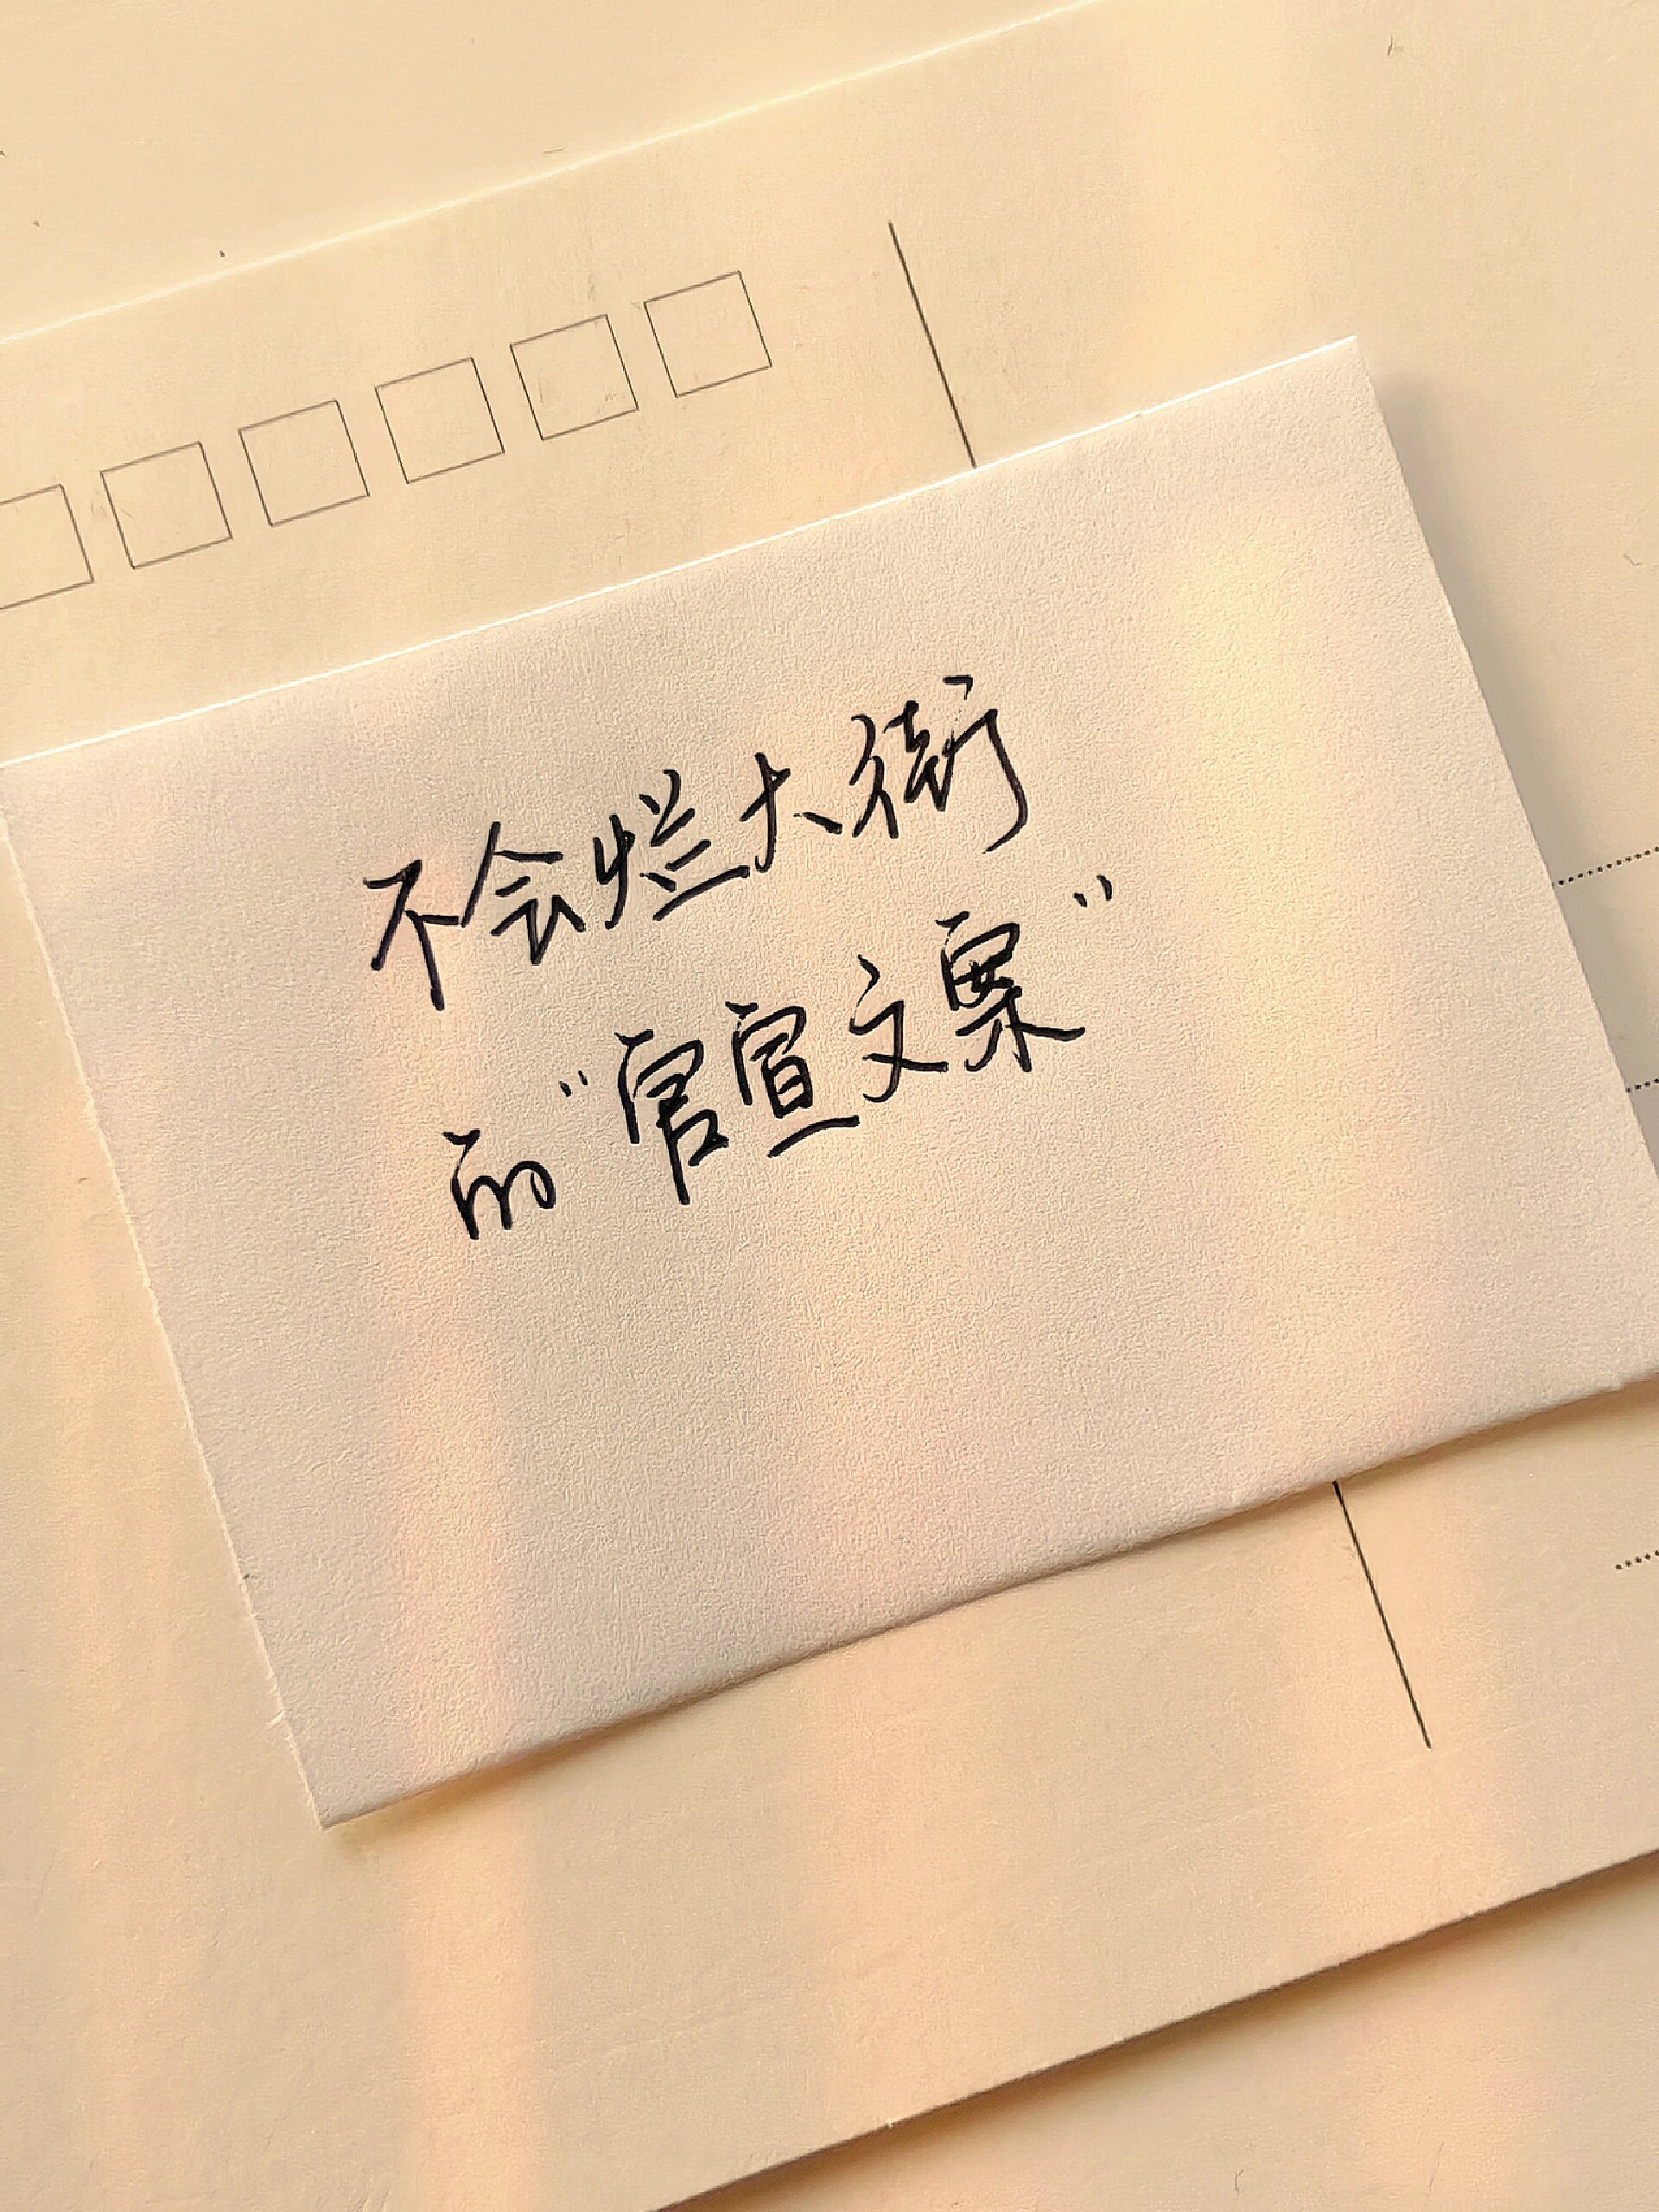 不会烂大街
的“官宣文案”